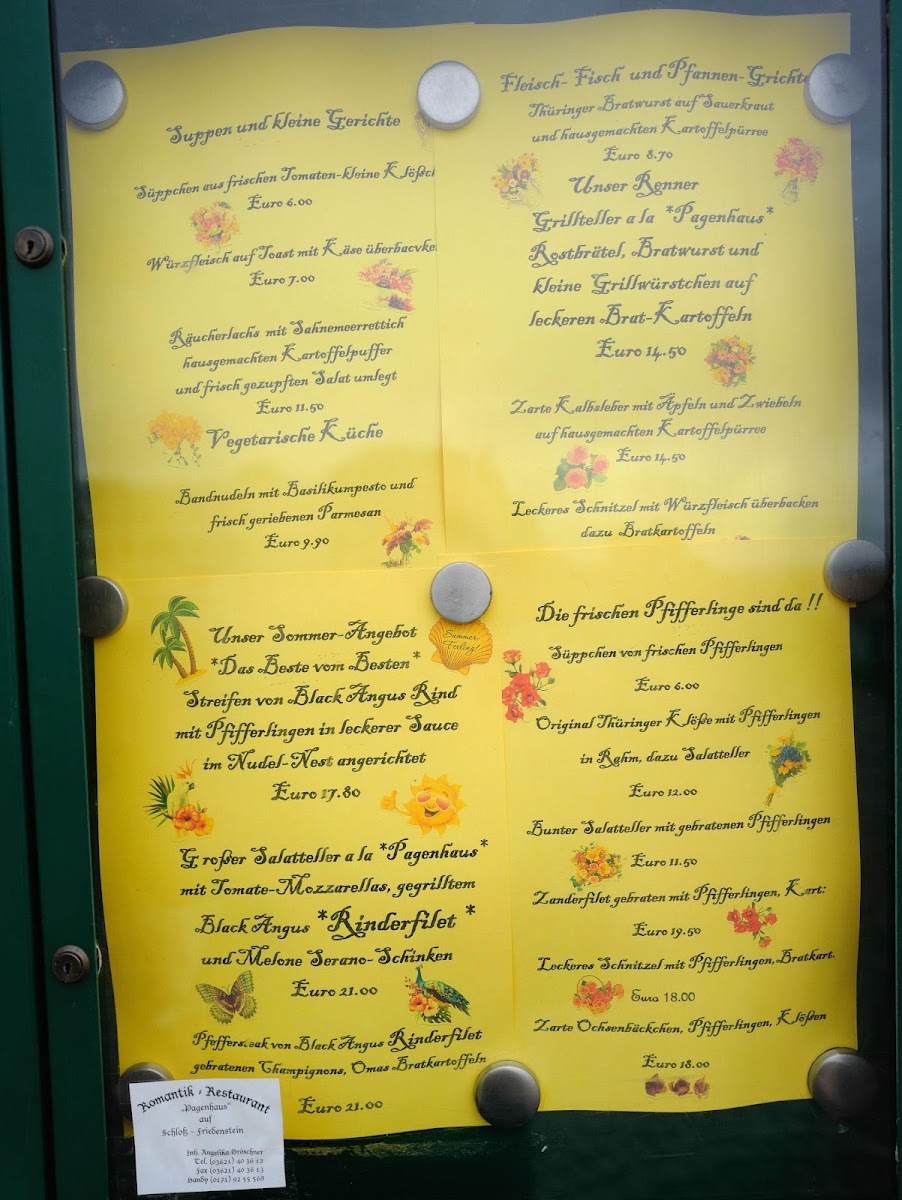 Suppen und kleine Gerichte
Süppchen aus frischen Tomaten-kleine Klößch
Euro 6.00
Würzfleisch auf Toast mit Käse überbacvke
Euro 7.00
Räucherlachs mit Sahnemeerrettich
hausgemachten Kartoffelpuffer
und frisch gezupften Salat umlegt
Euro 11.50
Vegetarische Küche
Bandnudeln mit Basilikumpesto und
frisch geriebenen Parmesan
Euro 9.90
Fleisch- Fisch und Pfannen-Grichte
Thüringer Bratwurst auf Sauerkraut
und hausgemachten Kartoffelpürree
Euro 8.70
Unser Renner
Grillteller a la *Pagenhaus*
Rostbrätel, Bratwurst und
kleine Grillwürstchen auf
leckeren Brat-Kartoffeln
Euro 14.50
Zarte Kalbsleber mit Äpfeln und Zwiebeln
auf hausgemachten Kartoffelpürree
Euro 14.50
Leckeres Schnitzel mit Würzfleisch überbacken
dazu Bratkartoffeln
Unser Sommer-Angebot
*Das Beste vom Besten*
Streifen von Black Angus Rind
mit Pfifferlingen in leckerer Sauce
im Nudel-Nest angerichtet
Euro 17.80
Summer-
Feeling!
Großer Salatteller a la *Pagenhaus*
mit Tomate-Mozzarellas, gegrilltem
Black Angus *Rinderfilet *
und Melone Serano-Schinken
Euro 21.00
Pfeffersteak von Black Angus Rinderfilet
gebratenen Champignons, Omas Bratkartoffeln
Euro 21.00
Die frischen Pfifferlinge sind da !!
Süppchen von frischen Pfifferlingen
Euro 6.00
Original Thüringer Klöße mit Pfifferlingen
in Rahm, dazu Salatteller
Euro 12.00
Bunter Salatteller mit gebratenen Pfifferlingen
Euro 11.50
Zanderfilet gebraten mit Pfifferlingen, Kart:
Euro 19.50
Leckeres Schnitzel mit Pfifferlingen, Bratkart.
Euro 18.00
Zarte Ochsenbäckchen, Pfifferlingen, Klößen
Euro 18.00
Romantik - Restaurant
„Pagenhaus"
auf
Schloß - Friedenstein
Inh. Angelika Gröschner
Tel. (03621) 40 36 12
Fax (03621) 40 36 13
Handy (0171) 92 55 568